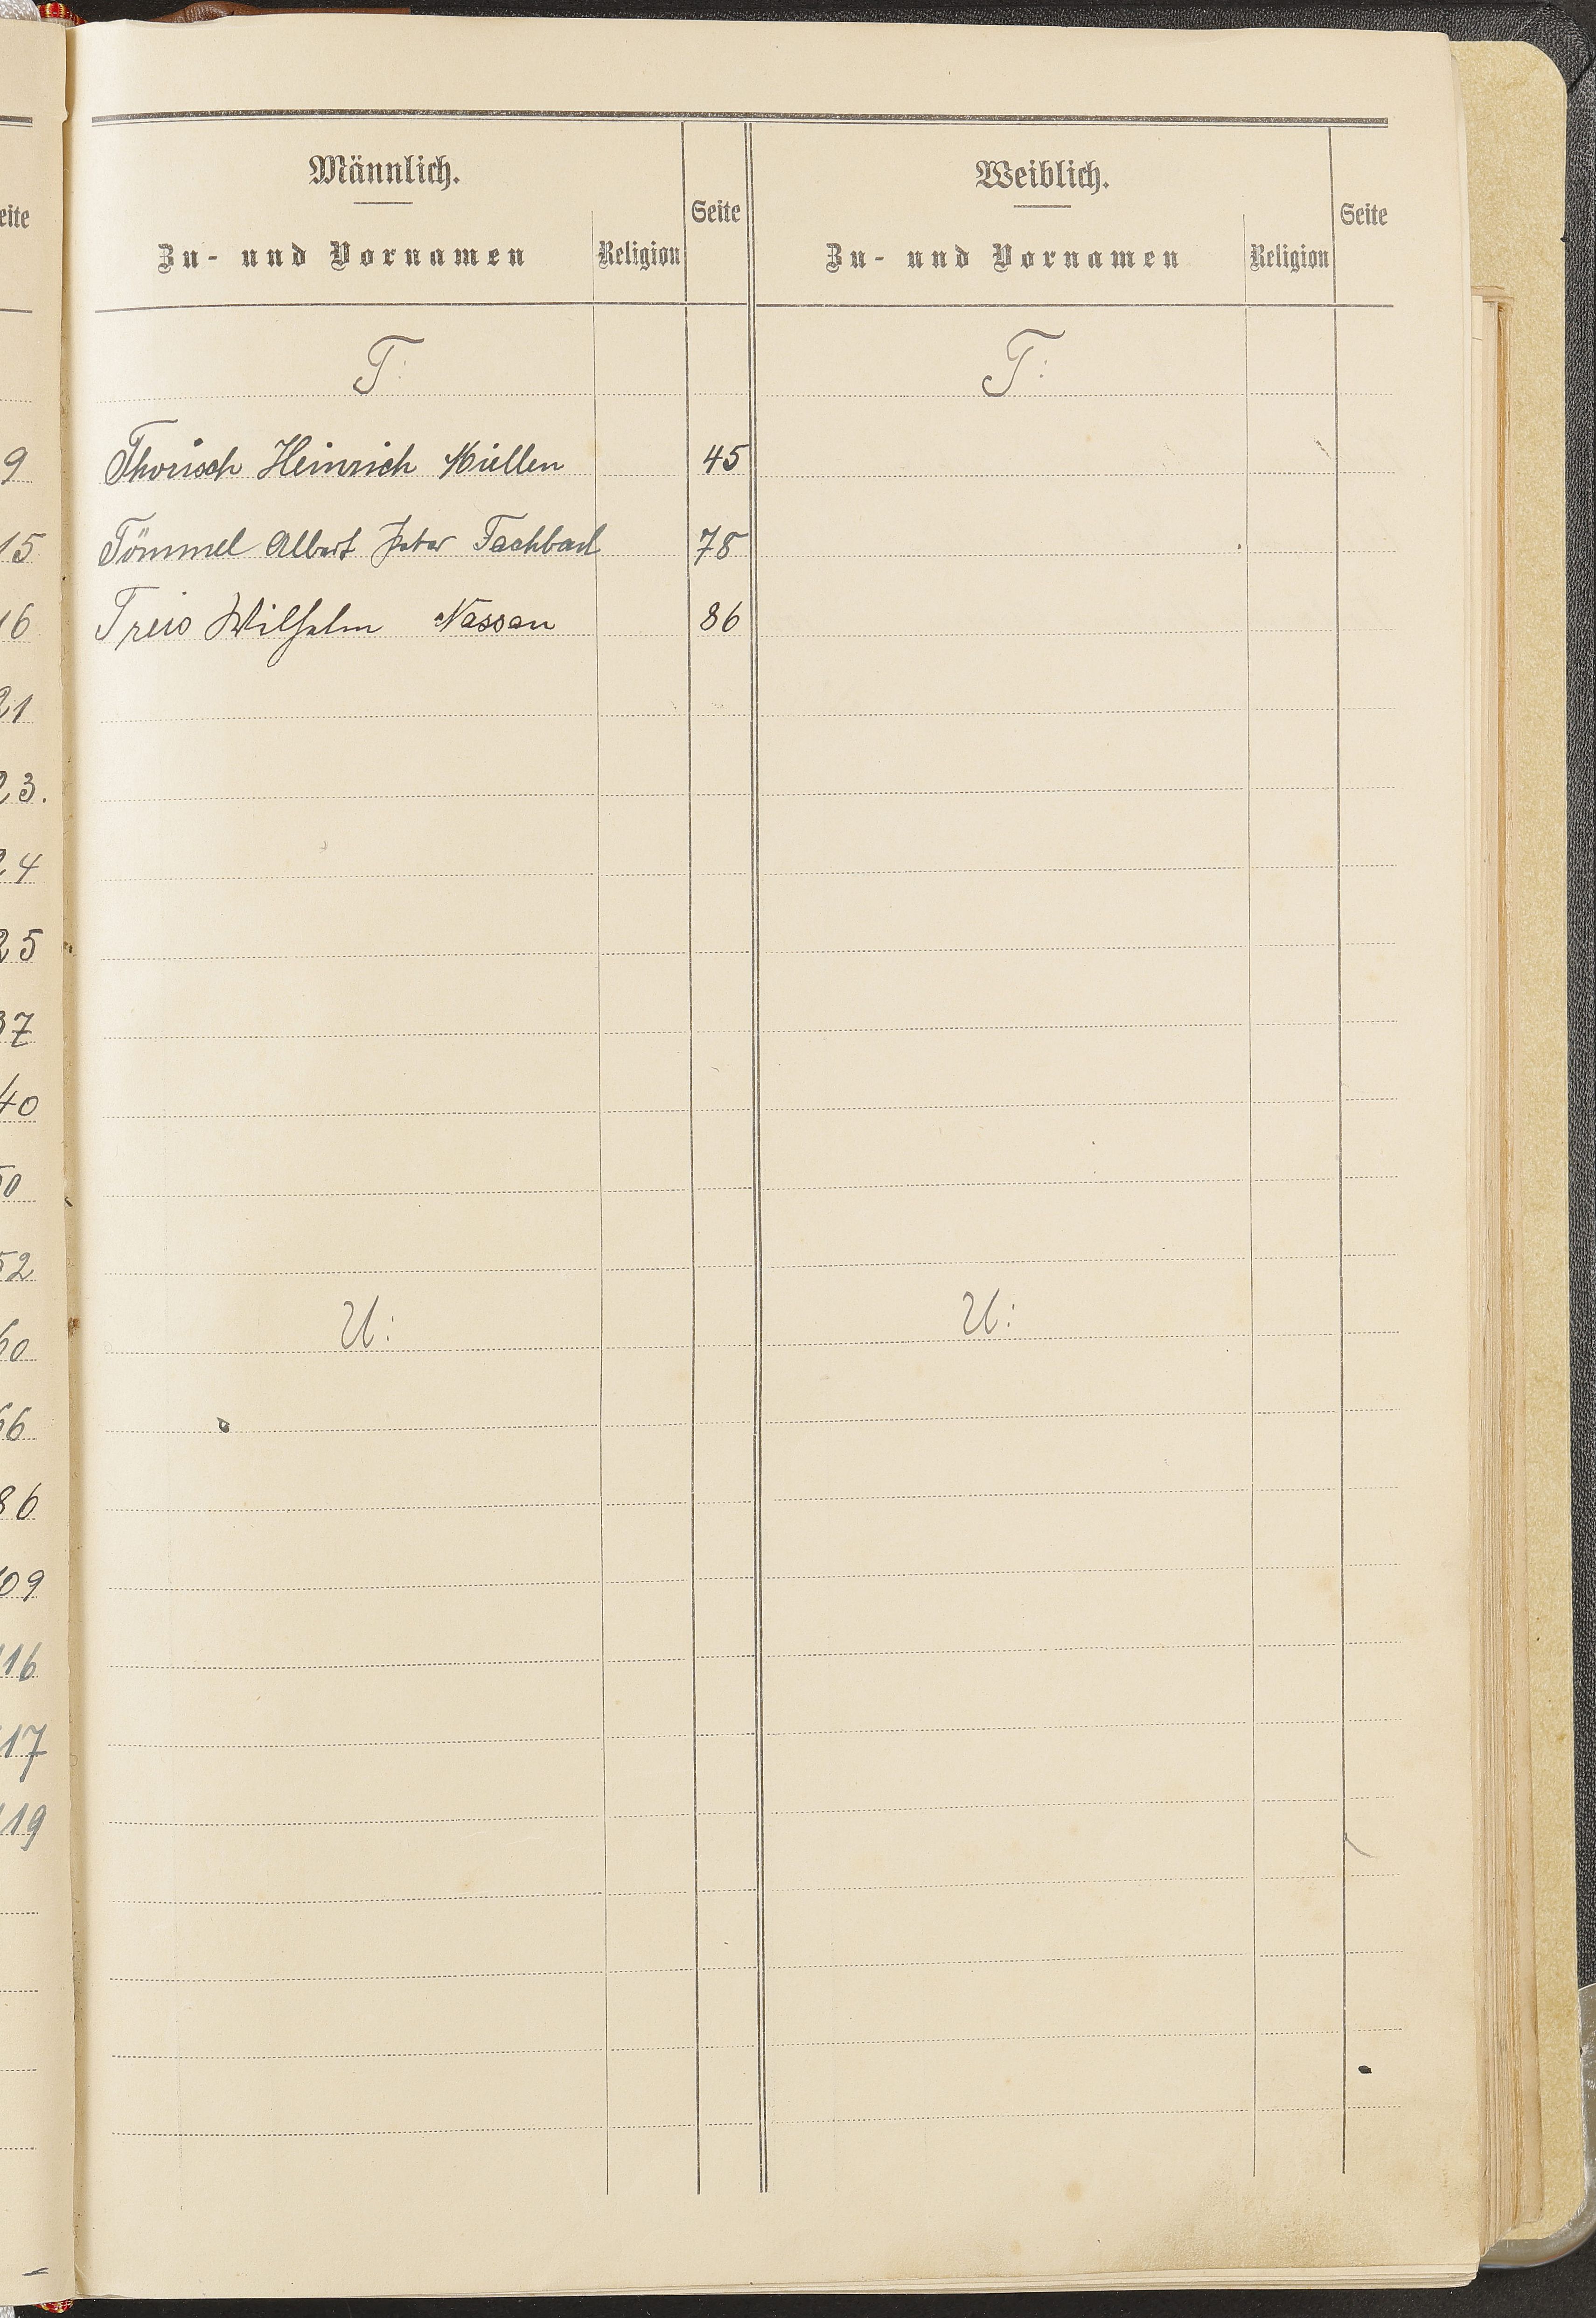 eite
9
15
16
21
23.
24
25
37
40
50
52
60
66
86
109
116
117
119
Männlich.
Zu- und Vornamen
Religion
Seite
T:
Thorisch Heinrich Miellen 45
Tömmel Albert Peter Fachbach 78
Treis Wilhelm Nassau 86
U:
Weiblich.
Zu- und Vornamen
Religion
Seite
T:
U: